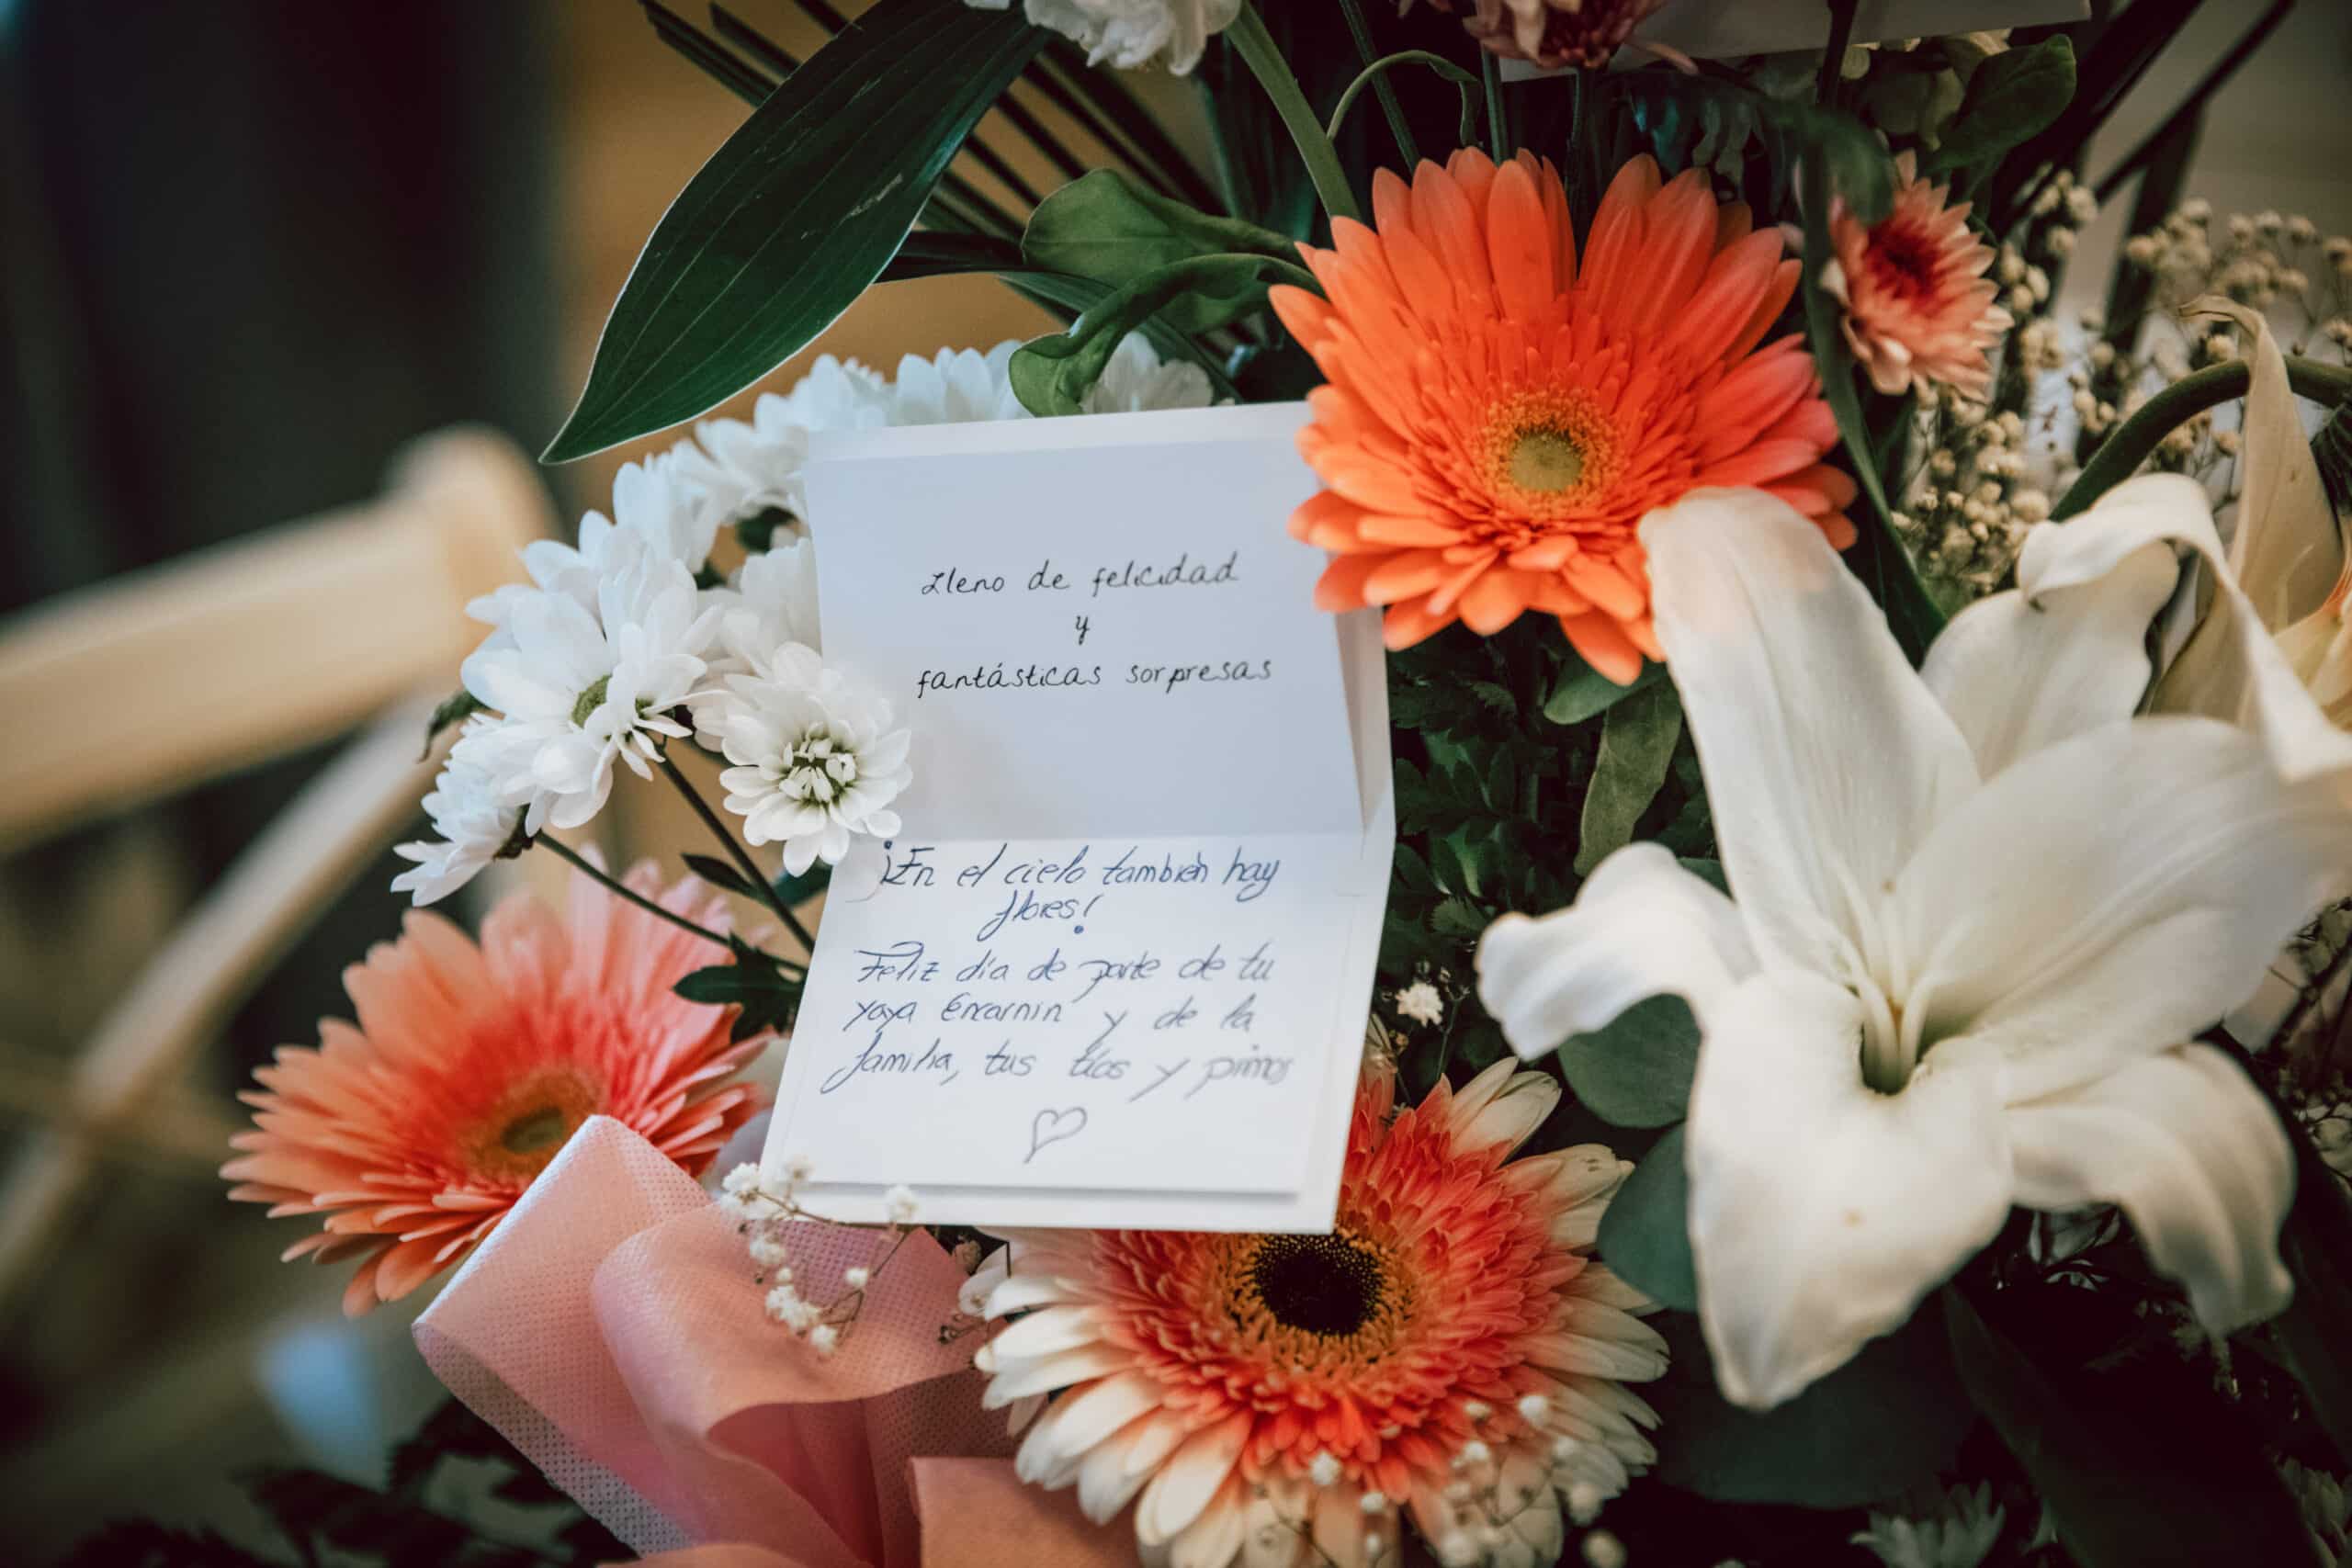 Lleno de felicidad
y
fantásticas sorpresas
¡En el cielo también hay
flores!
Feliz día de parte de tu
yaya Encarnin y de la
familia, tus tíos y primos